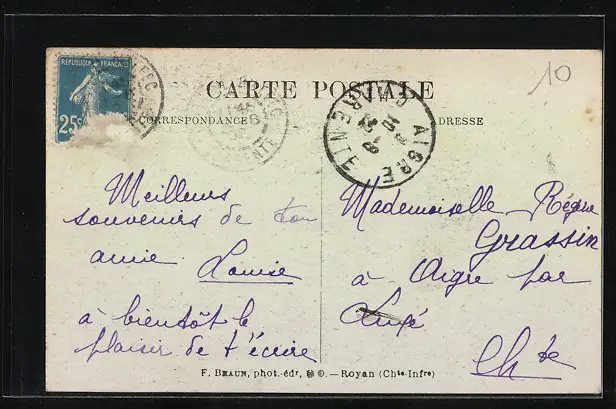 10
REPUBLIQUE FRANÇAISE
25c
CARTE POSTALE
CORRESPONDANCE
ADRESSE
AIGRE
CHARENTE
Meilleurs
souvenirs de ton
amie Louise
à bientôt le
plaisir de t'écrire
Mademoiselle Régine
Grassin
à Aigre par
Luxé
Chte
F. BRAUN, phot.-édr, Royan (Chte-Infre)